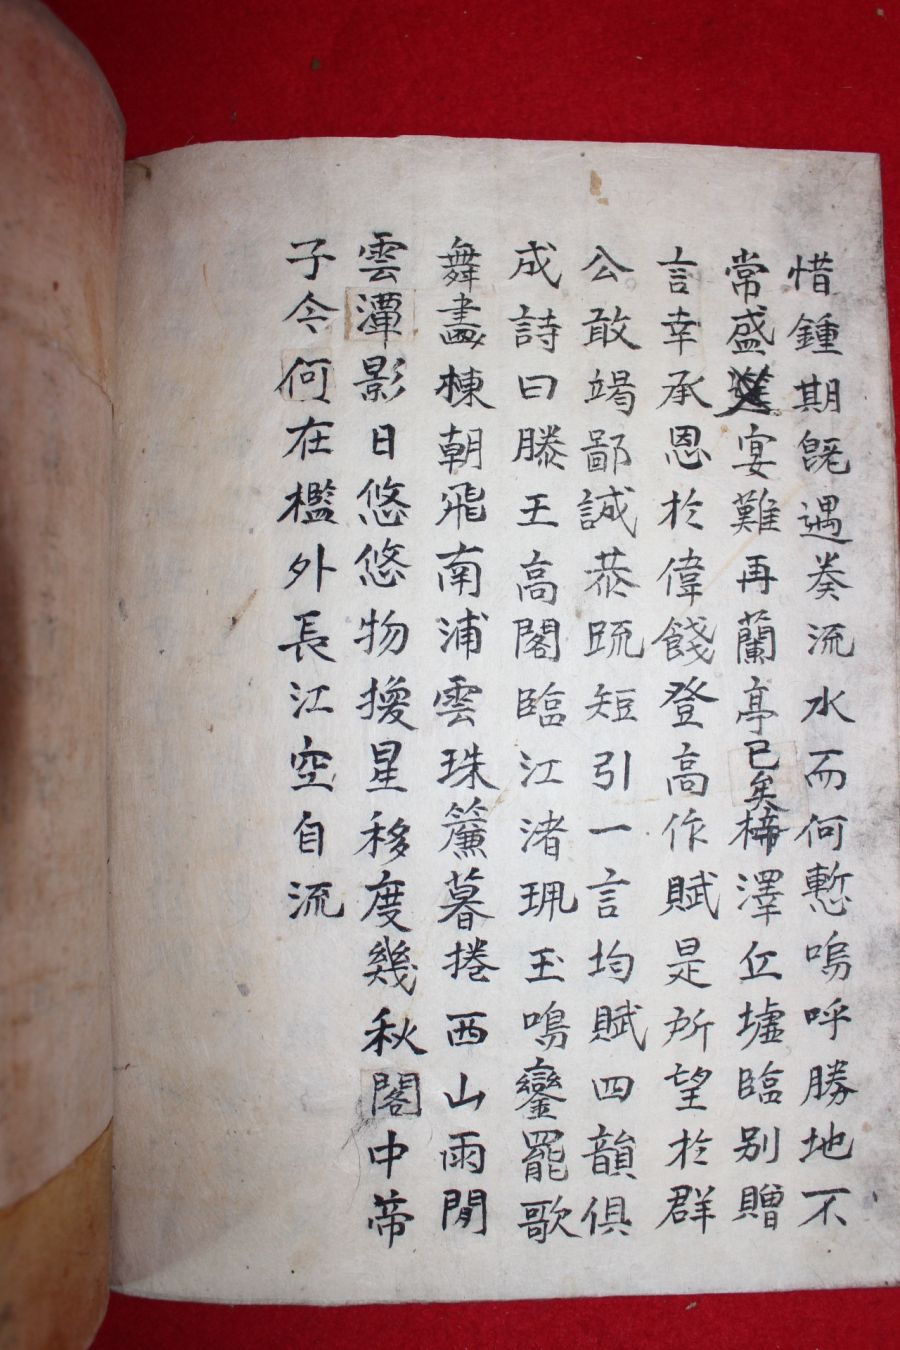 惜鍾期旣遇奏流水而何慙嗚呼勝地不
常盛宴難再蘭亭已矣梓澤丘墟臨別贈
言幸承恩於偉餞登高作賦是所望於群
公敢竭鄙誠恭疏短引一言均賦四韻俱
成詩曰滕王高閣臨江渚珮玉鳴鑾罷歌
舞畵棟朝飛南浦雲珠簾暮捲西山雨閒
雲潭影日悠悠物換星移度幾秋閣中帝
子今何在檻外長江空自流